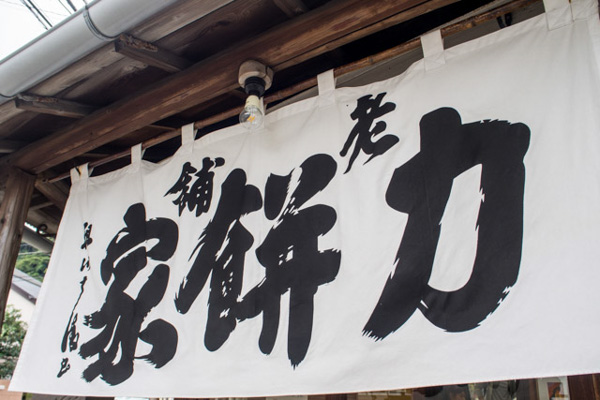 老舗
力餅家